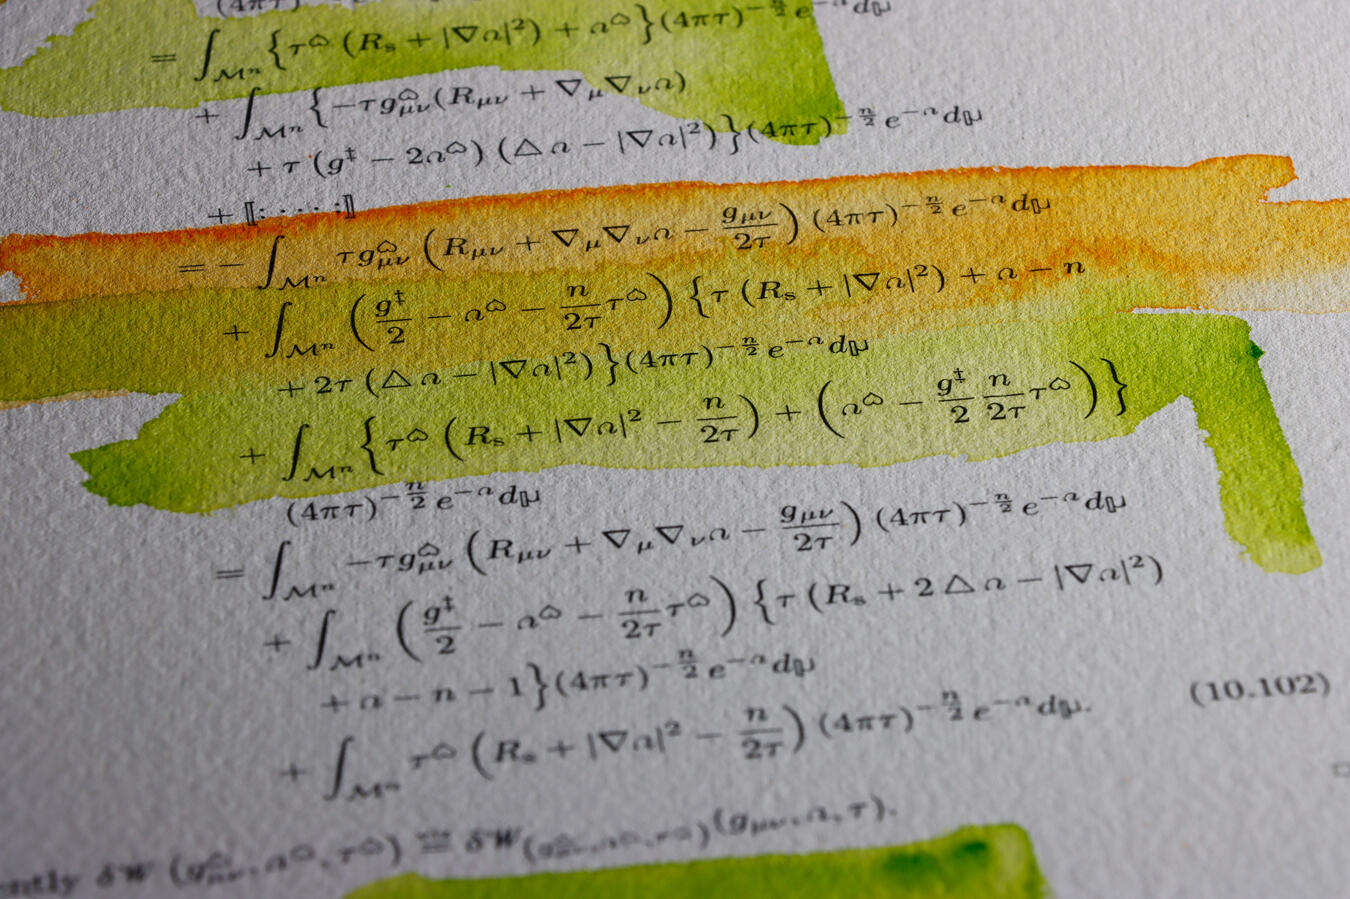 = ∫_{ℳⁿ} {τ^⌂ (R_s + |∇𝑎|²) + 𝑎^⌂}(4πτ)^{−n/2} e^{−𝑎} dμ
+ ∫_{ℳⁿ} {−τg^⌂_{μν}(R_{μν} + ∇_μ∇_ν𝑎)
+ τ (g^‡ − 2𝑎^⌂) (△𝑎 − |∇𝑎|²)}(4πτ)^{−n/2} e^{−𝑎} dμ
+ ⟦:····:⟧
= − ∫_{ℳⁿ} τg^⌂_{μν} (R_{μν} + ∇_μ∇_ν𝑎 − g_{μν}/2τ) (4πτ)^{−n/2} e^{−𝑎} dμ
+ ∫_{ℳⁿ} (g^‡/2 − 𝑎^⌂ − n/2τ τ^⌂) {τ (R_s + |∇𝑎|²) + 𝑎 − n
+ 2τ (△𝑎 − |∇𝑎|²)}(4πτ)^{−n/2} e^{−𝑎} dμ
+ ∫_{ℳⁿ} {τ^⌂ (R_s + |∇𝑎|² − n/2τ) + (𝑎^⌂ − g^‡/2 n/2τ τ^⌂)}
(4πτ)^{−n/2} e^{−𝑎} dμ
= ∫_{ℳⁿ} −τg^⌂_{μν} (R_{μν} + ∇_μ∇_ν𝑎 − g_{μν}/2τ) (4πτ)^{−n/2} e^{−𝑎} dμ
+ ∫_{ℳⁿ} (g^‡/2 − 𝑎^⌂ − n/2τ τ^⌂) {τ (R_s + 2△𝑎 − |∇𝑎|²)
+ 𝑎 − n − 1}(4πτ)^{−n/2} e^{−𝑎} dμ (10.102)
+ ∫_{ℳⁿ} τ^⌂ (R_s + |∇𝑎|² − n/2τ) (4πτ)^{−n/2} e^{−𝑎} dμ.
δ𝒲 (g^⌂_{μν}, 𝑎^⌂, τ^⌂) = δ𝒲 (g_{μν}, 𝑎, τ).